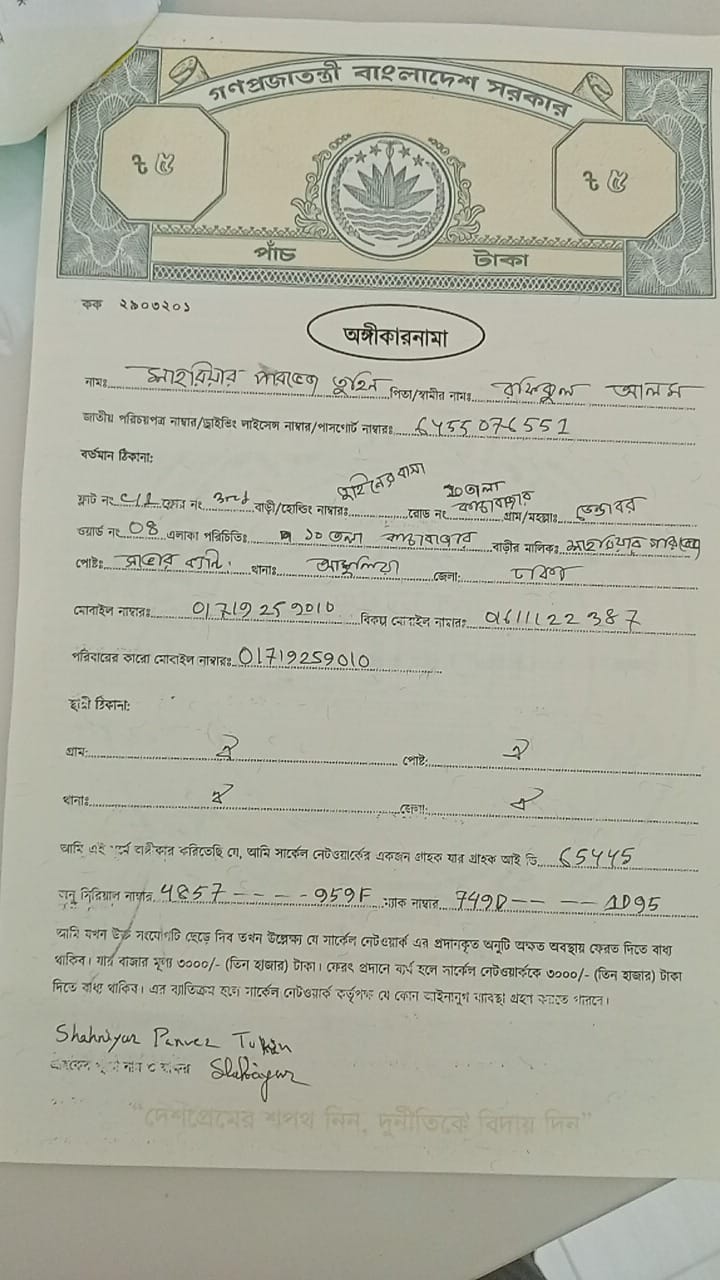 গণপ্রজাতন্ত্রী বাংলাদেশ সরকার
৳ ৫ ৳ ৫
পাঁচ টাকা
কক ২৯০৩২০১
অঙ্গীকারনামা
নামঃ সাহরিয়ার পারভেজ তুহিন পিতা/স্বামীর নামঃ রফিকুল আলম
জাতীয় পরিচয়পত্র নাম্বার/ড্রাইভিং লাইসেন্স নাম্বার/পাসপোর্ট নাম্বারঃ 6455076551
বর্তমান ঠিকানা:
ফ্লাট নং ফ্লোর নং 3rd বাড়ী/হোল্ডিং নাম্বারঃ তুহিনের বাসা রোড নং ১০ তলা কাচাবাজার গ্রাম/মহল্লাঃ
ওয়ার্ড নং 08 এলাকা পরিচিতিঃ ১০ তলা কাচাবাজার বাড়ীর মালিকঃ সাহরিয়ার পারভেজ
পোষ্টঃ থানাঃ আশুলিয়া জেলা: ঢাকা
মোবাইল নাম্বারঃ 01719259010 বিকল্প মোবাইল নাম্বারঃ 01611122387
পরিবারের কারো মোবাইল নাম্বারঃ 01719259010
স্থায়ী ঠিকানা:
গ্রাম: ঐ পোষ্ট: ঐ
থানাঃ ঐ জেলা: ঐ
আমি এই মর্মে অঙ্গীকার করিতেছি যে, আমি সার্কেল নেটওয়ার্কের একজন গ্রাহক যার গ্রাহক আই ডি 65445
অনু সিরিয়াল নাম্বার 4857 - - - - 959F ম্যাক নাম্বার 749D - - - - 1D95
আমি যখন উক্ত সংযোগটি ছেড়ে দিব তখন উল্লেক্ষ্য যে সার্কেল নেটওয়ার্ক এর প্রদানকৃত অনুটি অক্ষত অবস্থায় ফেরত দিতে বাধ্য
থাকিব। যার বাজার মূল্য ৩০০০/- (তিন হাজার) টাকা। ফেরৎ প্রদানে ব্যর্থ হলে সার্কেল নেটওয়ার্ককে ৩০০০/- (তিন হাজার) টাকা
দিতে বাধ্য থাকিব। এর ব্যাতিক্রম হলে সার্কেল নেটওয়ার্ক কর্তৃপক্ষ যে কোন আইনানুগ ব্যাবস্থা গ্রহণ করতে পারবে।
Shahriyar Parvez Tuhin
Shahriyar
"দেশপ্রেমের শপথ নিন, দুর্নীতিকে বিদায় দিন"